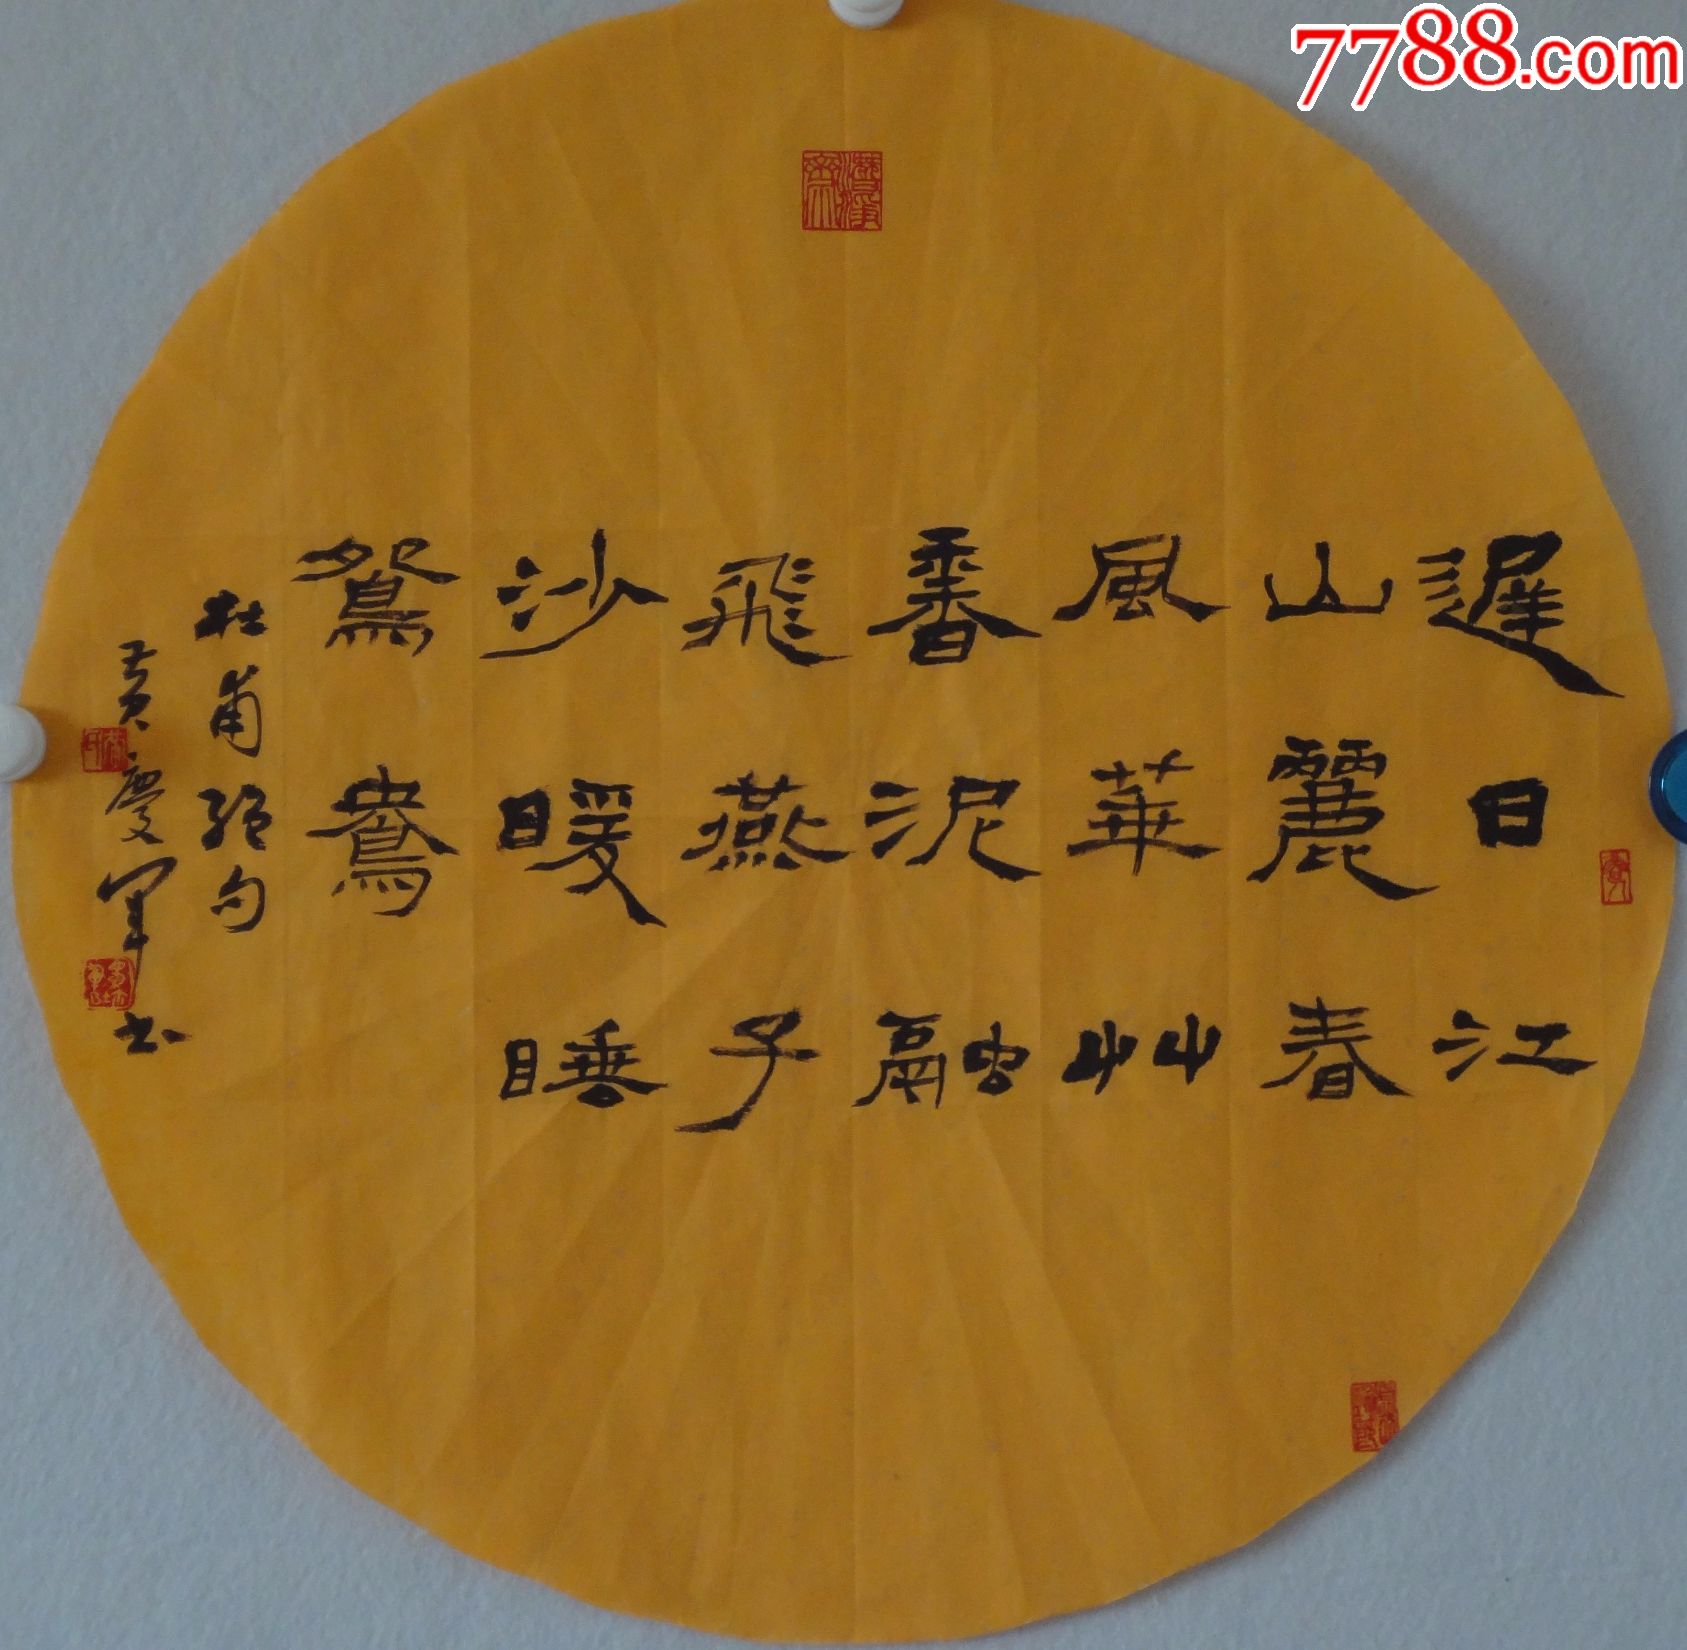 7788.com
遲日江
山麗春
風華艸
香泥融
飛燕子
沙暖睡
鴛鴦
杜甫绝句
黄慶軍书